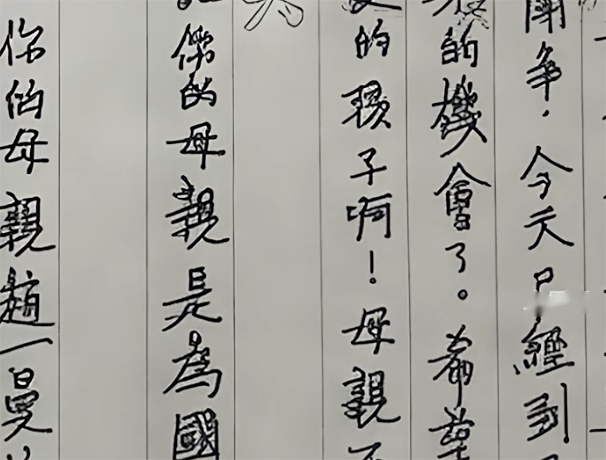 争，今天已經到
的機會了。希望
的孩子啊！母親
你的母親是為國
你的母親趙一曼